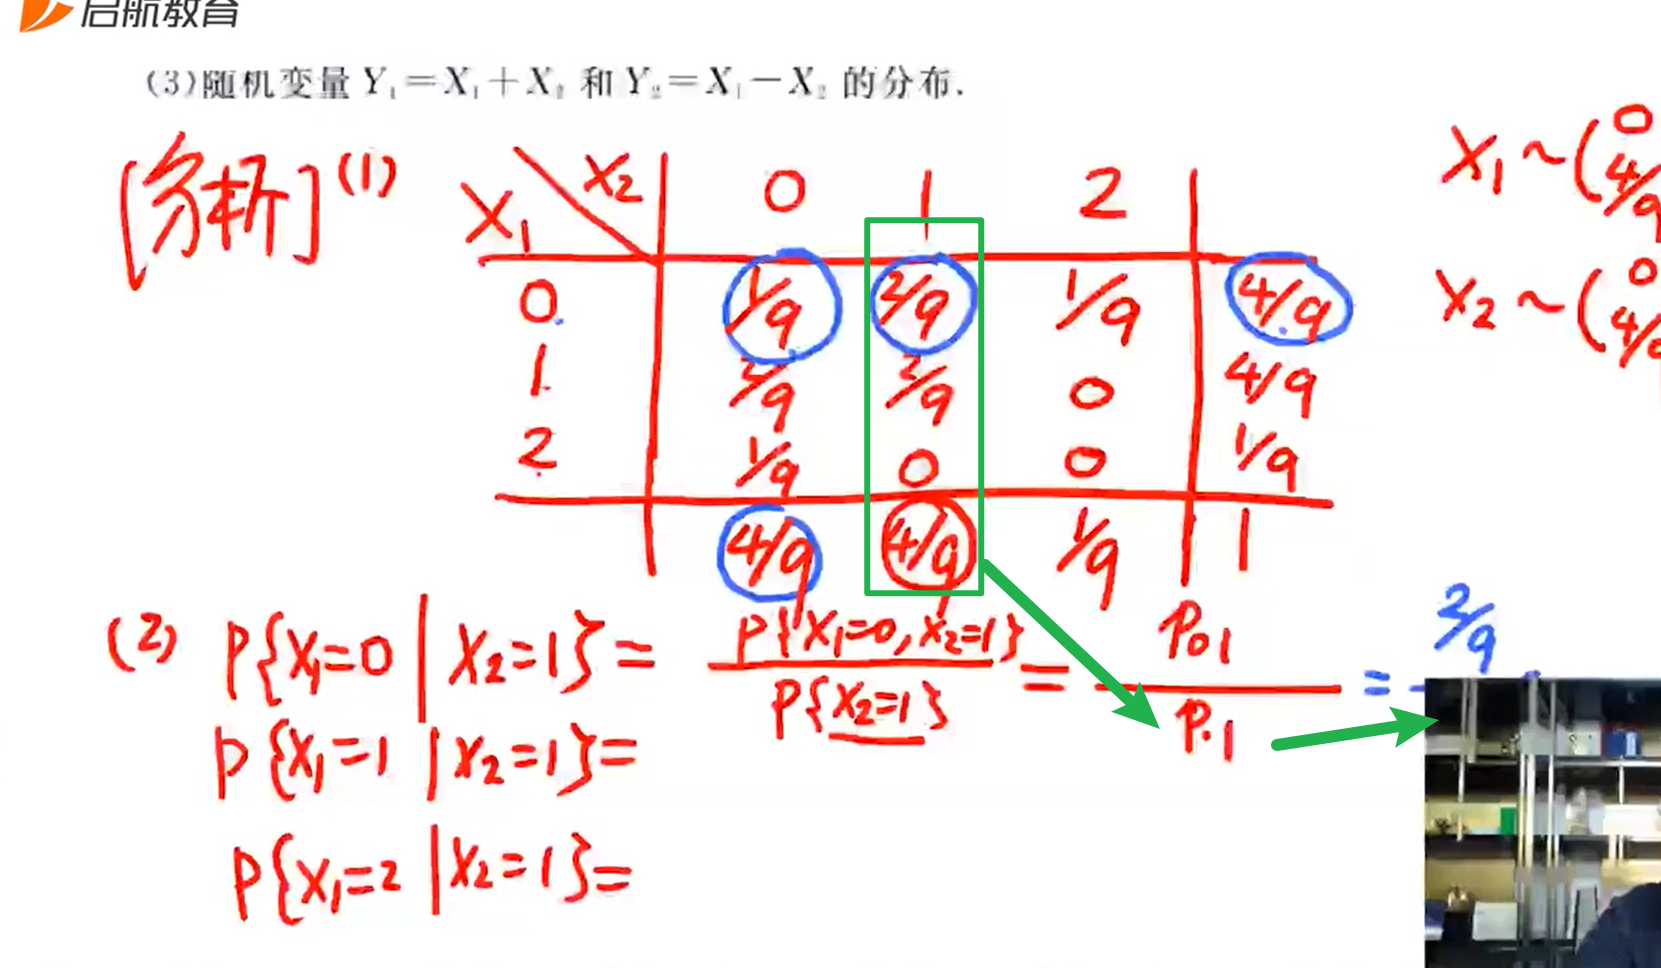 启航教育
(3)随机变量 Y₁=X₁+X₂ 和 Y₂=X₁-X₂ 的分布.
[分析](1)
X₁ \ X₂ 0 1 2
0 1/9 2/9 1/9 4/9
1 2/9 2/9 0 4/9
2 1/9 0 0 1/9
4/9 4/9 1/9 1
X₁ ~ ( 0
4/9
X₂ ~ ( 0
4/9
(2) P{X₁=0 | X₂=1} = P{X₁=0, X₂=1} / P{X₂=1} = P₀₁ / P.₁ = 2/9
P{X₁=1 | X₂=1} =
P{X₁=2 | X₂=1} =